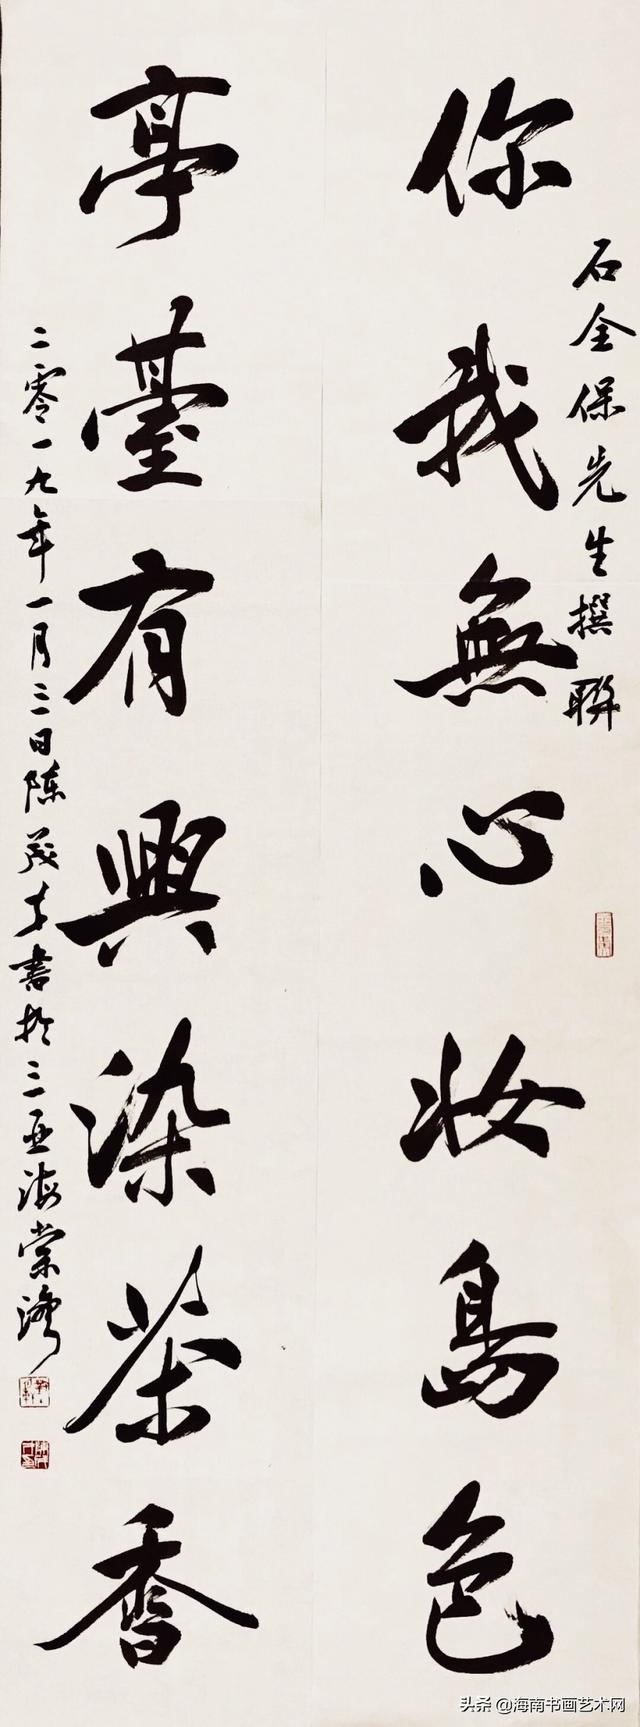 石全保先生撰联
你我無心妝島色
亭臺有興染茶香
二零一九年一月三日陈茂才書於三亚海棠灣
头条 @海南书画艺术网